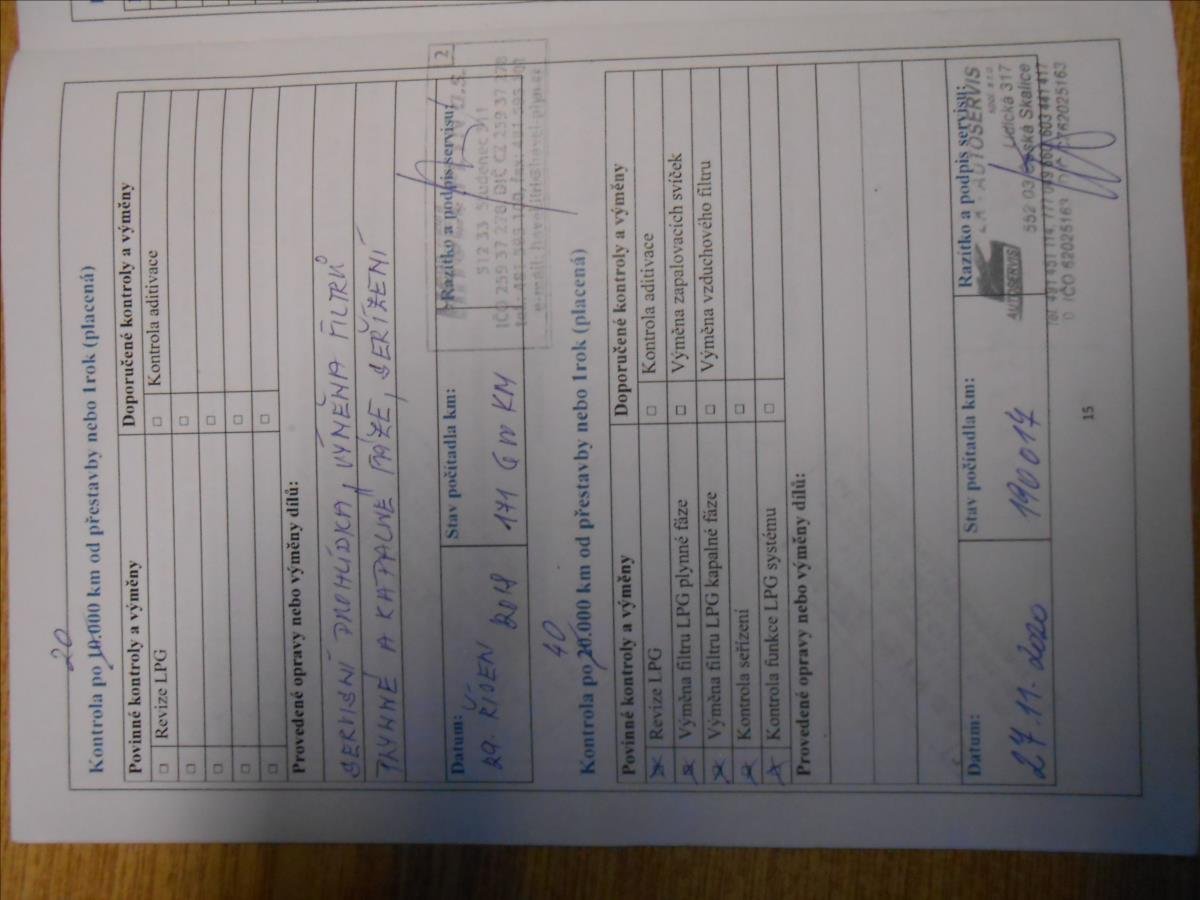 Kontrola po 10.000 km od přestavby nebo 1rok (placená)
20
Povinné kontroly a výměny Doporučené kontroly a výměny
□ Revize LPG □ Kontrola aditivace
□ □
□ □
□ □
□ □
Provedené opravy nebo výměny dílů:
SERVISNÍ PROHLÍDKA, VÝMĚNA FILTRŮ
PLYNNÉ A KAPALNÉ FÁZE, SEŘÍZENÍ
Datum: Stav počítadla km: Razítko a podpis servisu: 2
29. ŘÍJEN 171 600 KM
512 33 Studenec 311
IČO 259 37 278, DIČ CZ 259 37 278
Kontrola po 20.000 km od přestavby nebo 1rok (placená)
40
Povinné kontroly a výměny Doporučené kontroly a výměny
Revize LPG □ Kontrola aditivace
Výměna filtru LPG plynné fáze □ Výměna zapalovacích svíček
Výměna filtru LPG kapalné fáze □ Výměna vzduchového filtru
Kontrola seřízení □
Kontrola funkce LPG systému □
Provedené opravy nebo výměny dílů:
Datum: Stav počítadla km: Razítko a podpis servisu:
27.11.2020 190017
AUTOSERVIS
AUTOSERVIS
spol. s r.o.
Lidická 317
552 03 Česká Skalice
IČO 62025163
15